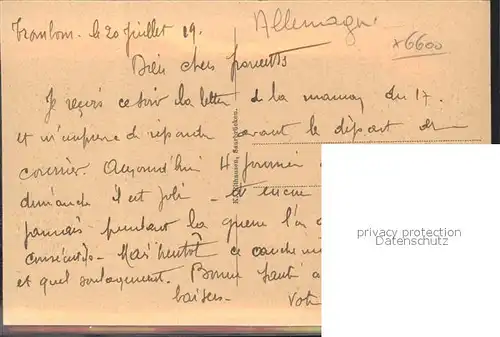 le 20 Juillet 19.
Allemagne
x6600
Bien chers parents
Je reçois ce soir la lettre de la maman du 17.
et m'empresse de répondre avant le départ du
courrier. Aujourd'hui 4
dimanche il est joli
jamais pendant la guerre l'on
ce cauchemar
et quel soulagement. Bonne santé
baisers.
Saarbrücken.
privacy protection
Datenschutz